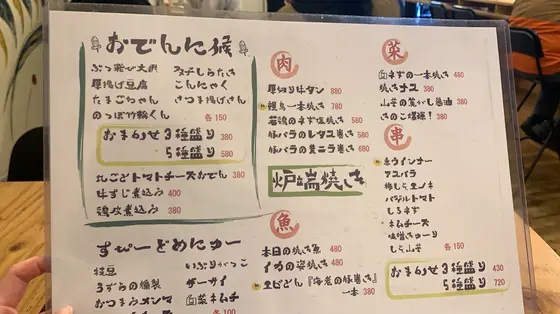 おでんに候
ぶっ飛び大根
厚揚げ豆腐
たまごちゃん
のっぽ竹輪くん
玉子しらたき
こんにゃく
さつま揚げさん
各150
おまかせ 3種盛り 380
5種盛り 580
丸ごとトマトチーズおでん 380
牛すじ煮込み 400
鶏皮煮込み 380
すぴーどめにゅー
枝豆
うずらの燻製
おつまみメンマ
いぶりがっこ
ザーサイ
白菜キムチ
各100
肉
厚切り牛タン 880
親鳥一本焼き 760
若鶏のネギ塩焼き 580
豚バラのレタス巻き 580
豚バラの黄ニラ巻き 680
炉端焼き
魚
本日の焼き魚 480
イカの姿焼き 480
エビどん『海老の豚巻き』
一本 380
菜
白ネギの一本焼き 480
焼きナス 380
山芋の焦がし醤油 380
きのこ爆弾! 380
串
ウインナー
アスパラ
椎しらエノキ
バジルトマト
しろネギ
ネムチーズ
味噌きゅーり
しら山芋
各150
おまかせ 3種盛り 430
5種盛り 720